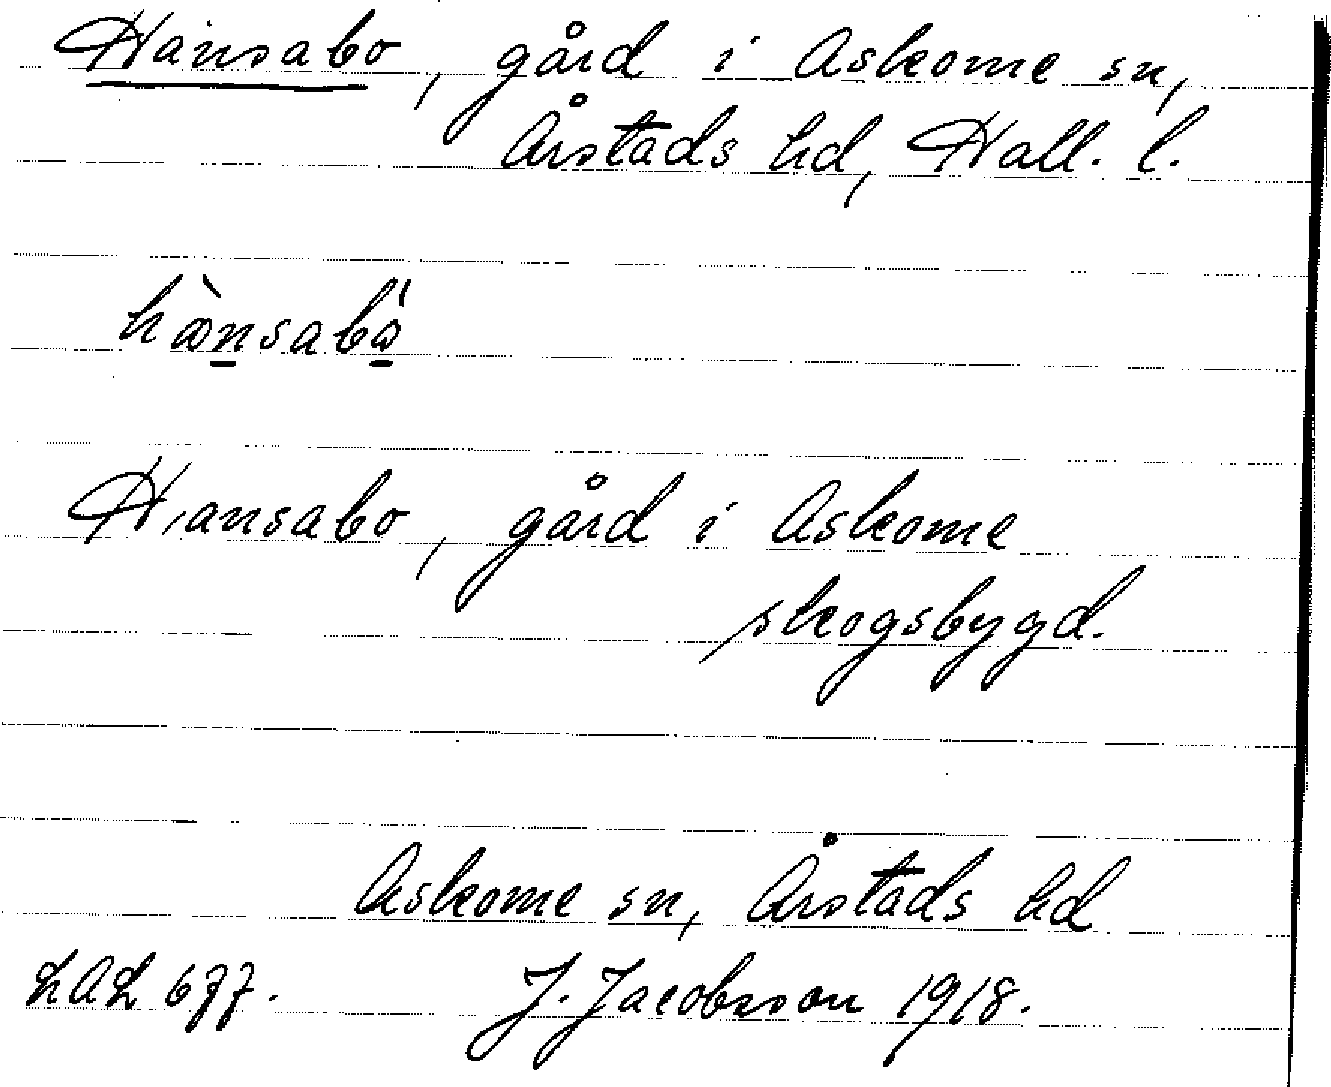 Hansabo, gård i Askome sn,
Årstads hd, Hall. l.
Hansabo, gård i Askome
skogsbygd.
Askome sn, Årstads hd
LAL 677. J. Jacobsson 1918.